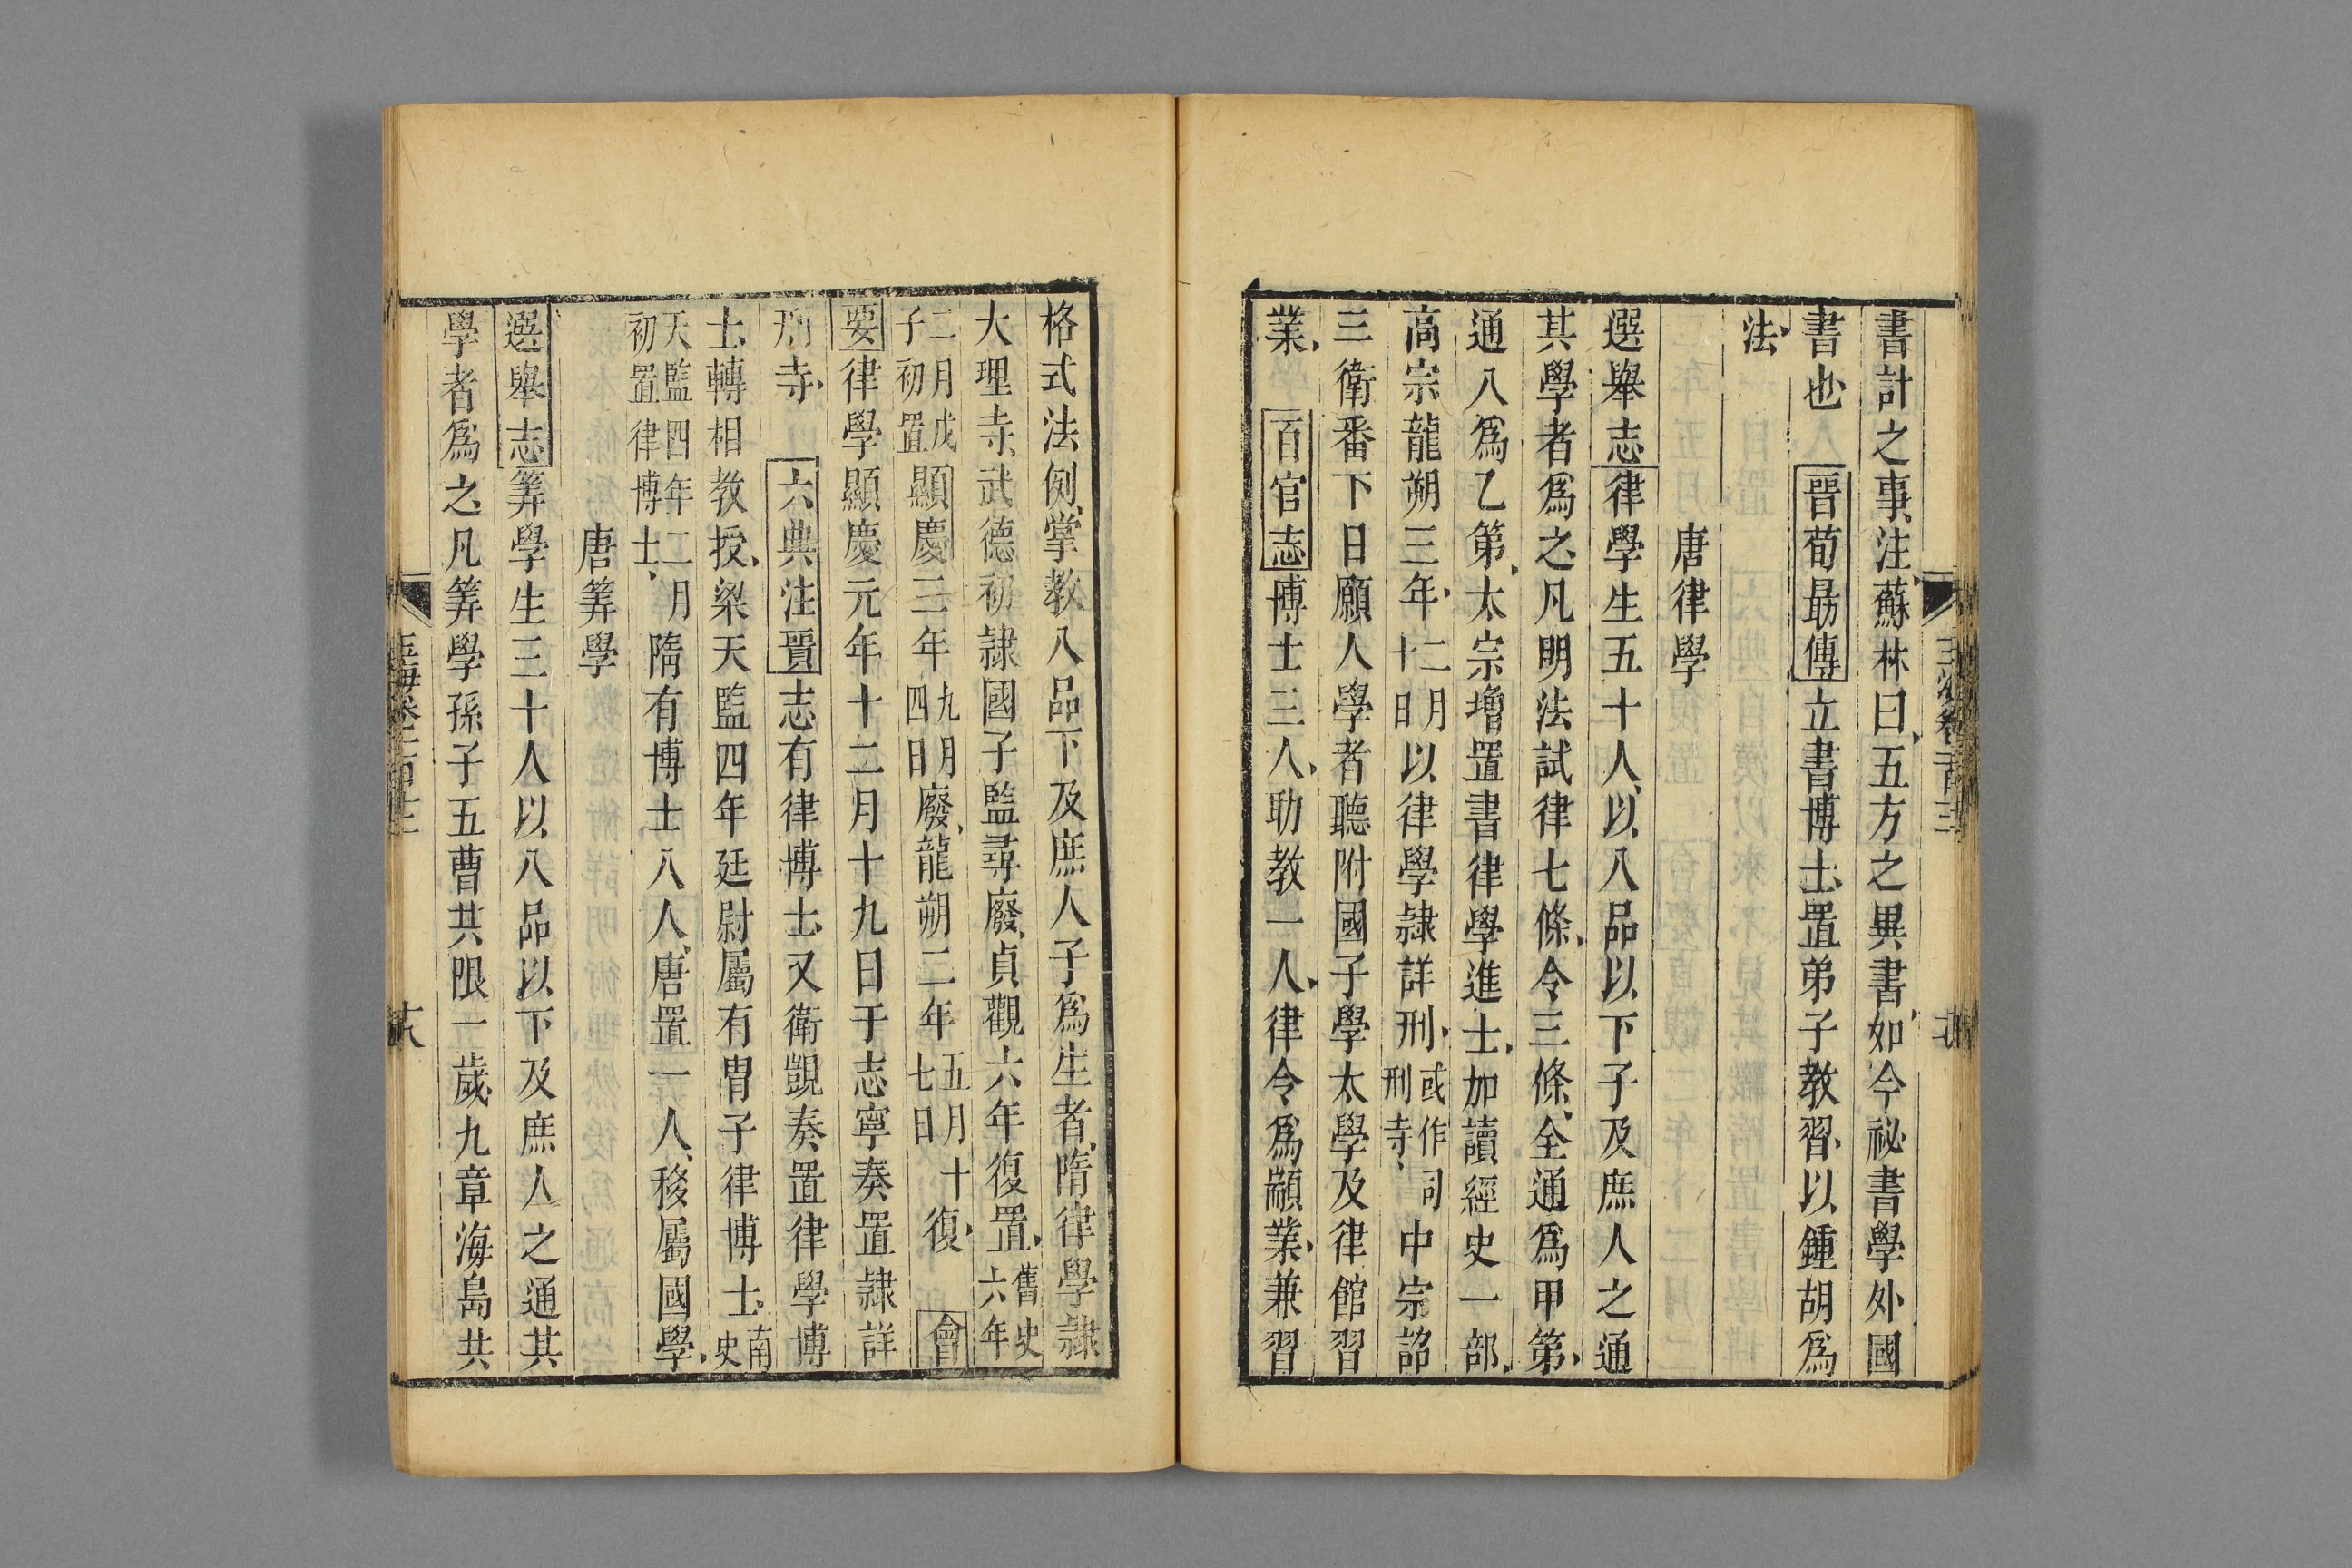 書計之事注蘇林曰五方之異書如今祕書學外國
書也 晉荀勗傳立書博士置弟子教習以鍾胡爲
法
唐律學
選舉志律學生五十人以八品以下子及庶人之通
其學者爲之凡明法試律七條令三條全通爲甲第
通八爲乙第太宗增置書律學進士加讀經史一部
高宗龍朔三年十二月日以律學隷詳刑或作司刑寺中宗詔
三衛番下日願人學者聽附國子學太學及律館習
業 百官志博士三人助教一人律令爲顓業兼習
格式法例掌教八品下及庶人子爲生者隋律學隷
大理寺武德初隷國子監尋廢貞觀六年復置舊史六年
二月戊子初置顯慶三年九月四日廢龍朔二年五月十七日復 會
要律學顯慶元年十二月十九日于志寧奏置隷詳
刑寺 六典注晉志有律博士又衛覬奏置律學博
士轉相教授梁天監四年廷尉屬有胄子律博士南史
天監四年二月初置律博士隋有博士八人唐置一人移屬國學
唐筭學
選舉志筭學生三十人以八品以下及庶人之通其
學者爲之凡筭學孫子五曹共限一歲九章海島共
玉海卷一百十二
十八